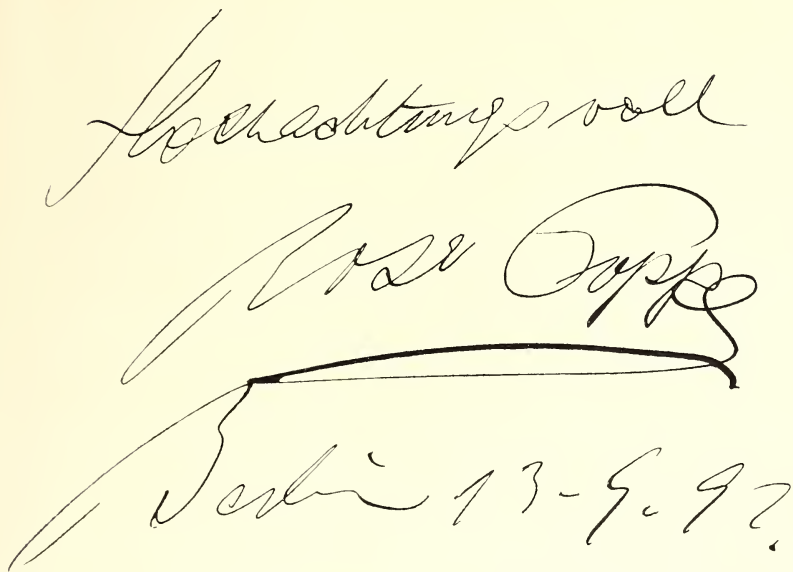 Hochachtungsvoll
Rosa Poppe
Berlin 13-9.97.